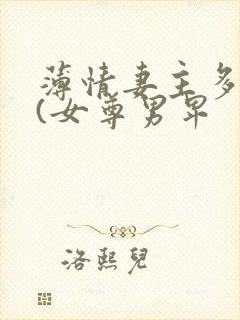 薄情妻主多
(女尊男卑
洛熙兒